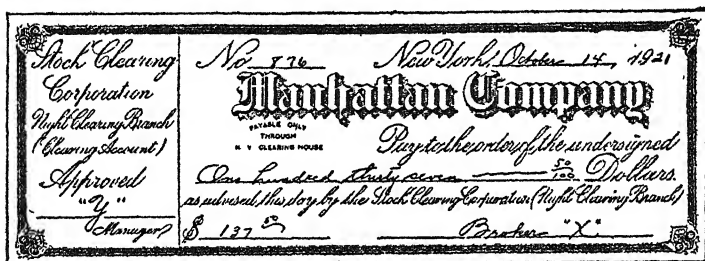 Stock Clearing
Corporation
Night Clearing Branch
(Clearing Account)
Approved
"Y"
Manager
No 876 New York, October 14, 1921
Manhattan Company
PAYABLE ONLY
THROUGH
N Y CLEARING HOUSE
Pay to the order of the undersigned
One hundred thirty seven 50/100 Dollars
as advised this day by the Stock Clearing Corporation (Night Clearing Branch)
$ 137 50 Broker "X"